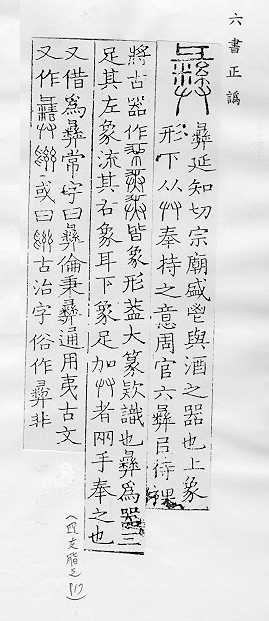 六書正譌
彝延知切宗廟盛鬯與酒之器也上象
形下从廾奉持之意周官六彝㠯待祼
將古器作皆象形蓋大篆欵識也彝爲器三
足其左象流其右象耳下象足加廾者兩手奉之也
又借爲彝常字曰彝倫秉彝通用夷古文
又作或曰古治字俗作彞非